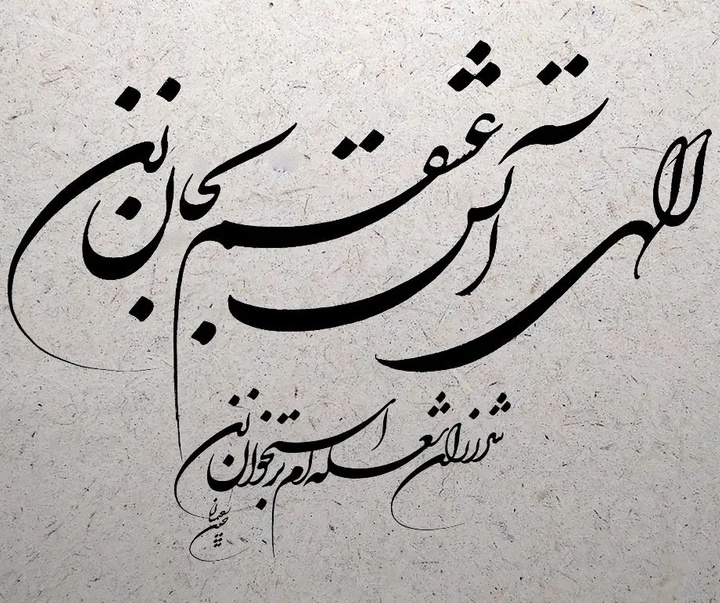 الهی آتش عشقم بجان زن
شرر زان شعله ام بر استخوان زن